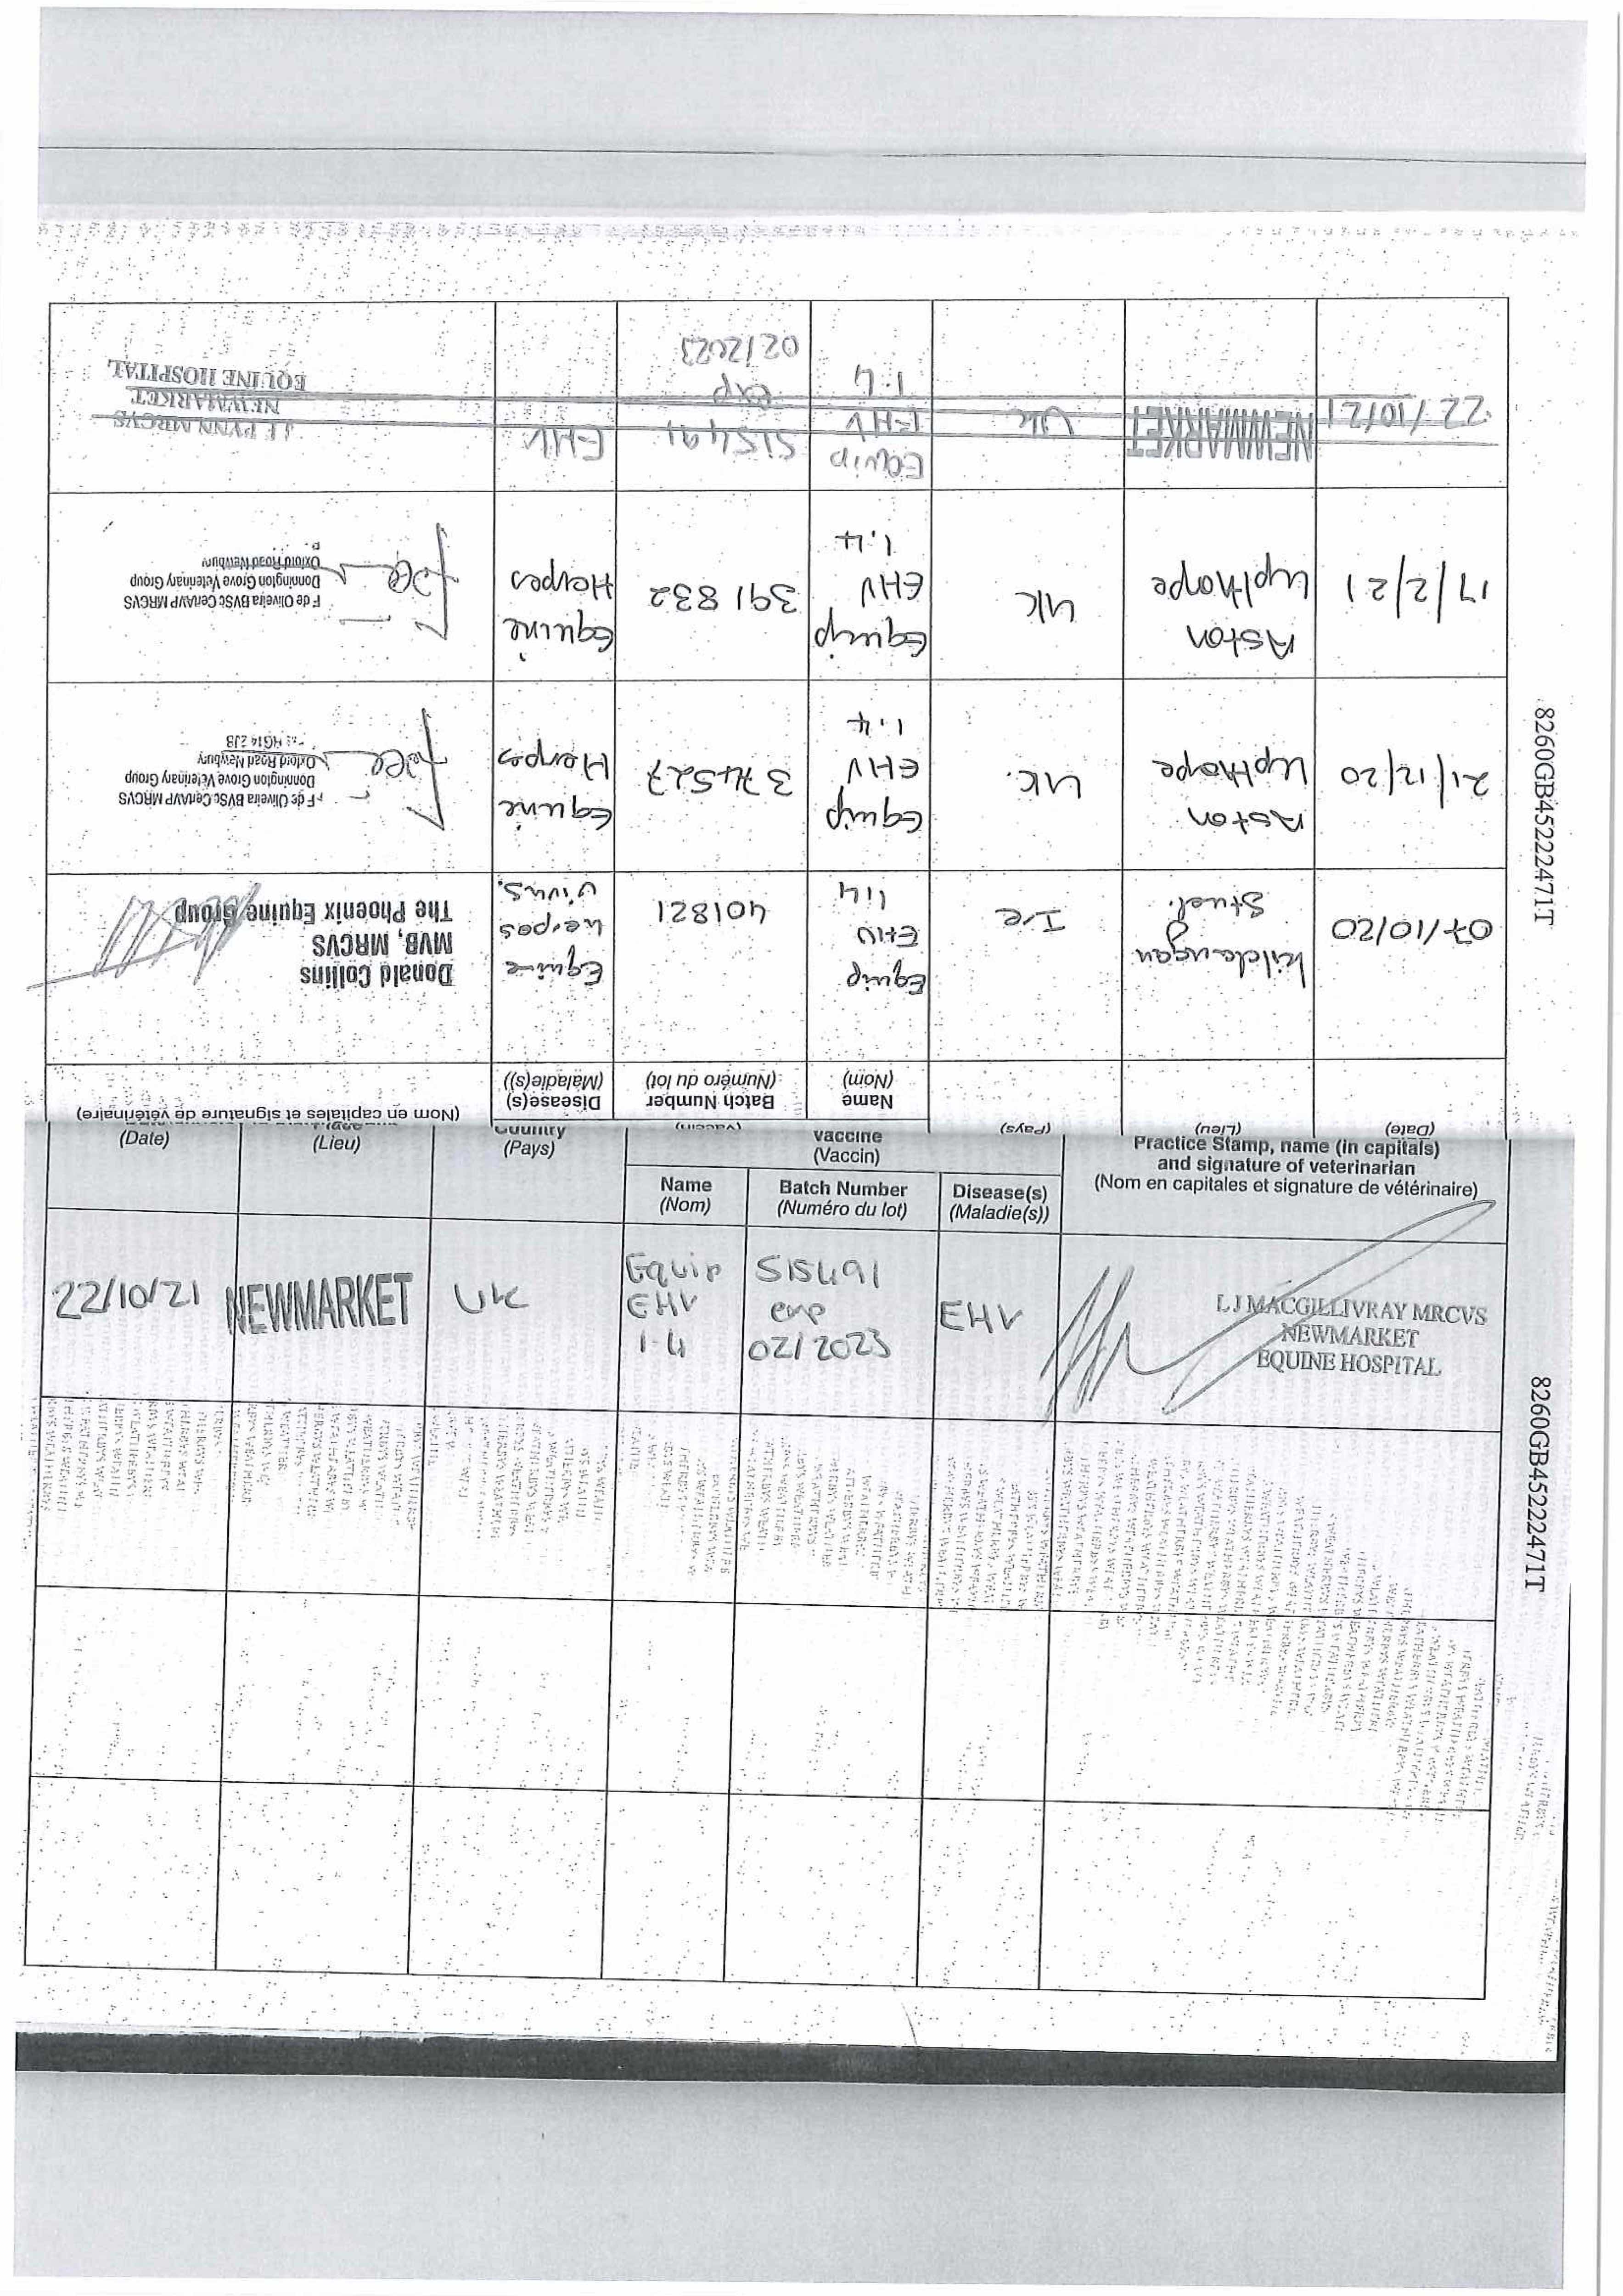 (Nom en capitales et signature de vétérinaire)
(Date)
(Lieu)
(Pays)
Name
(Nom)
Batch Number
(Numéro du lot)
Disease(s)
(Maladie(s))
07/10/20
Kildangan
Stud.
Ire
Equip
EHV
1,4
401821
Equine
Herpes
Virus.
Donald Collins
MVB, MRCVS
The Phoenix Equine Group
21/12/20
Aston
Upthorpe
UK.
Equip
EHV
1.4
374527
Equine
Herpes
F de Oliveira BVSc CertAVP MRCVS
Donnington Grove Veterinary Group
Oxford Road Newbury
17/2/21
Aston
Upthorpe
UK
Equip
EHV
1.4
391832
Equine
Herpes
F de Oliveira BVSc CertAVP MRCVS
Donnington Grove Veterinary Group
Oxford Road Newbury
22/10/21
NEWMARKET
UK
Equip
EHV
1.4
515491
exp
02/2023
EHV
MRCVS
NEWMARKET
EQUINE HOSPITAL
8260GB45222471T
(Date)
(Lieu)
Country
(Pays)
vaccine
(Vaccin)
Name
(Nom)
Batch Number
(Numéro du lot)
Disease(s)
(Maladie(s))
Practice Stamp, name (in capitals)
and signature of veterinarian
(Nom en capitales et signature de vétérinaire)
22/10/21
NEWMARKET
UK
Equip
EHV
1-4
515491
exp
02/2023
EHV
L J MACGILLIVRAY MRCVS
NEWMARKET
EQUINE HOSPITAL
8260GB45222471T